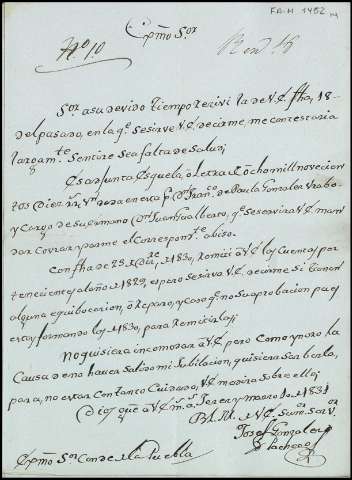 FA.M 1452
Exmo Sor
No 10
Sor: a su devido tiempo recivi la de V.E. fha. 18
del pasado, en la qe. se sirve V.E. decirme, me contestaria
largamte. Sentire sea falta de Salud;
Es adjunta Esquela, o Letra, de Ocho mill novecien
tos Diez rrs. vn. dada en esta pr. Dn. Franco. de Paula Gonzalez
y Cargo de su ermano Dn. Juan Gualberto, qe. se servira V.E. man
dar Covrar y darme el Correspondte. abiso.
Con fha de 23 de Dize. de 1830, Remiti a V.E. las Cuentas per
tenecientes al año de 1829, espero se sirva V.E. decirme si tienen
alguna equibocacion, o Reparo, y caso qe. no su aprobacion pues
estoy formando las de 1830, para Remitirlas;
No quisiera incomodar a V.E. pero Como ygnoro la
Causa de no haver Salido mi Jubilacion, quisiera Saberlo,
para, no estar Con tanto Cuidado, V.E. me dira Sobre ello;
Dios gue. a V.E. ms. as. Jerez y marzo 1o de 1831
B.L.M. de V.E. Su
Josef Gonzalez
Pacheco
Exmo Sor Conde de la Puebla